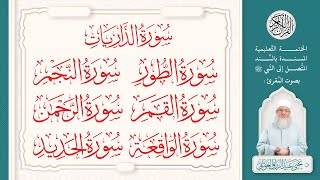 سُورَةُ الذَّارِيَاتِ
سُورَةُ الطُّورِ سُورَةُ النَّجْمِ
سُورَةُ القَمَرِ سُورَةُ الرَّحْمَنِ
سُورَةُ الوَاقِعَةِ سُورَةُ الحَدِيدِ
القرآن الكريم
الختمة التعليمية
المسندة بالسند
المتصل إلى النبي ﷺ
بصوت المقرئ: